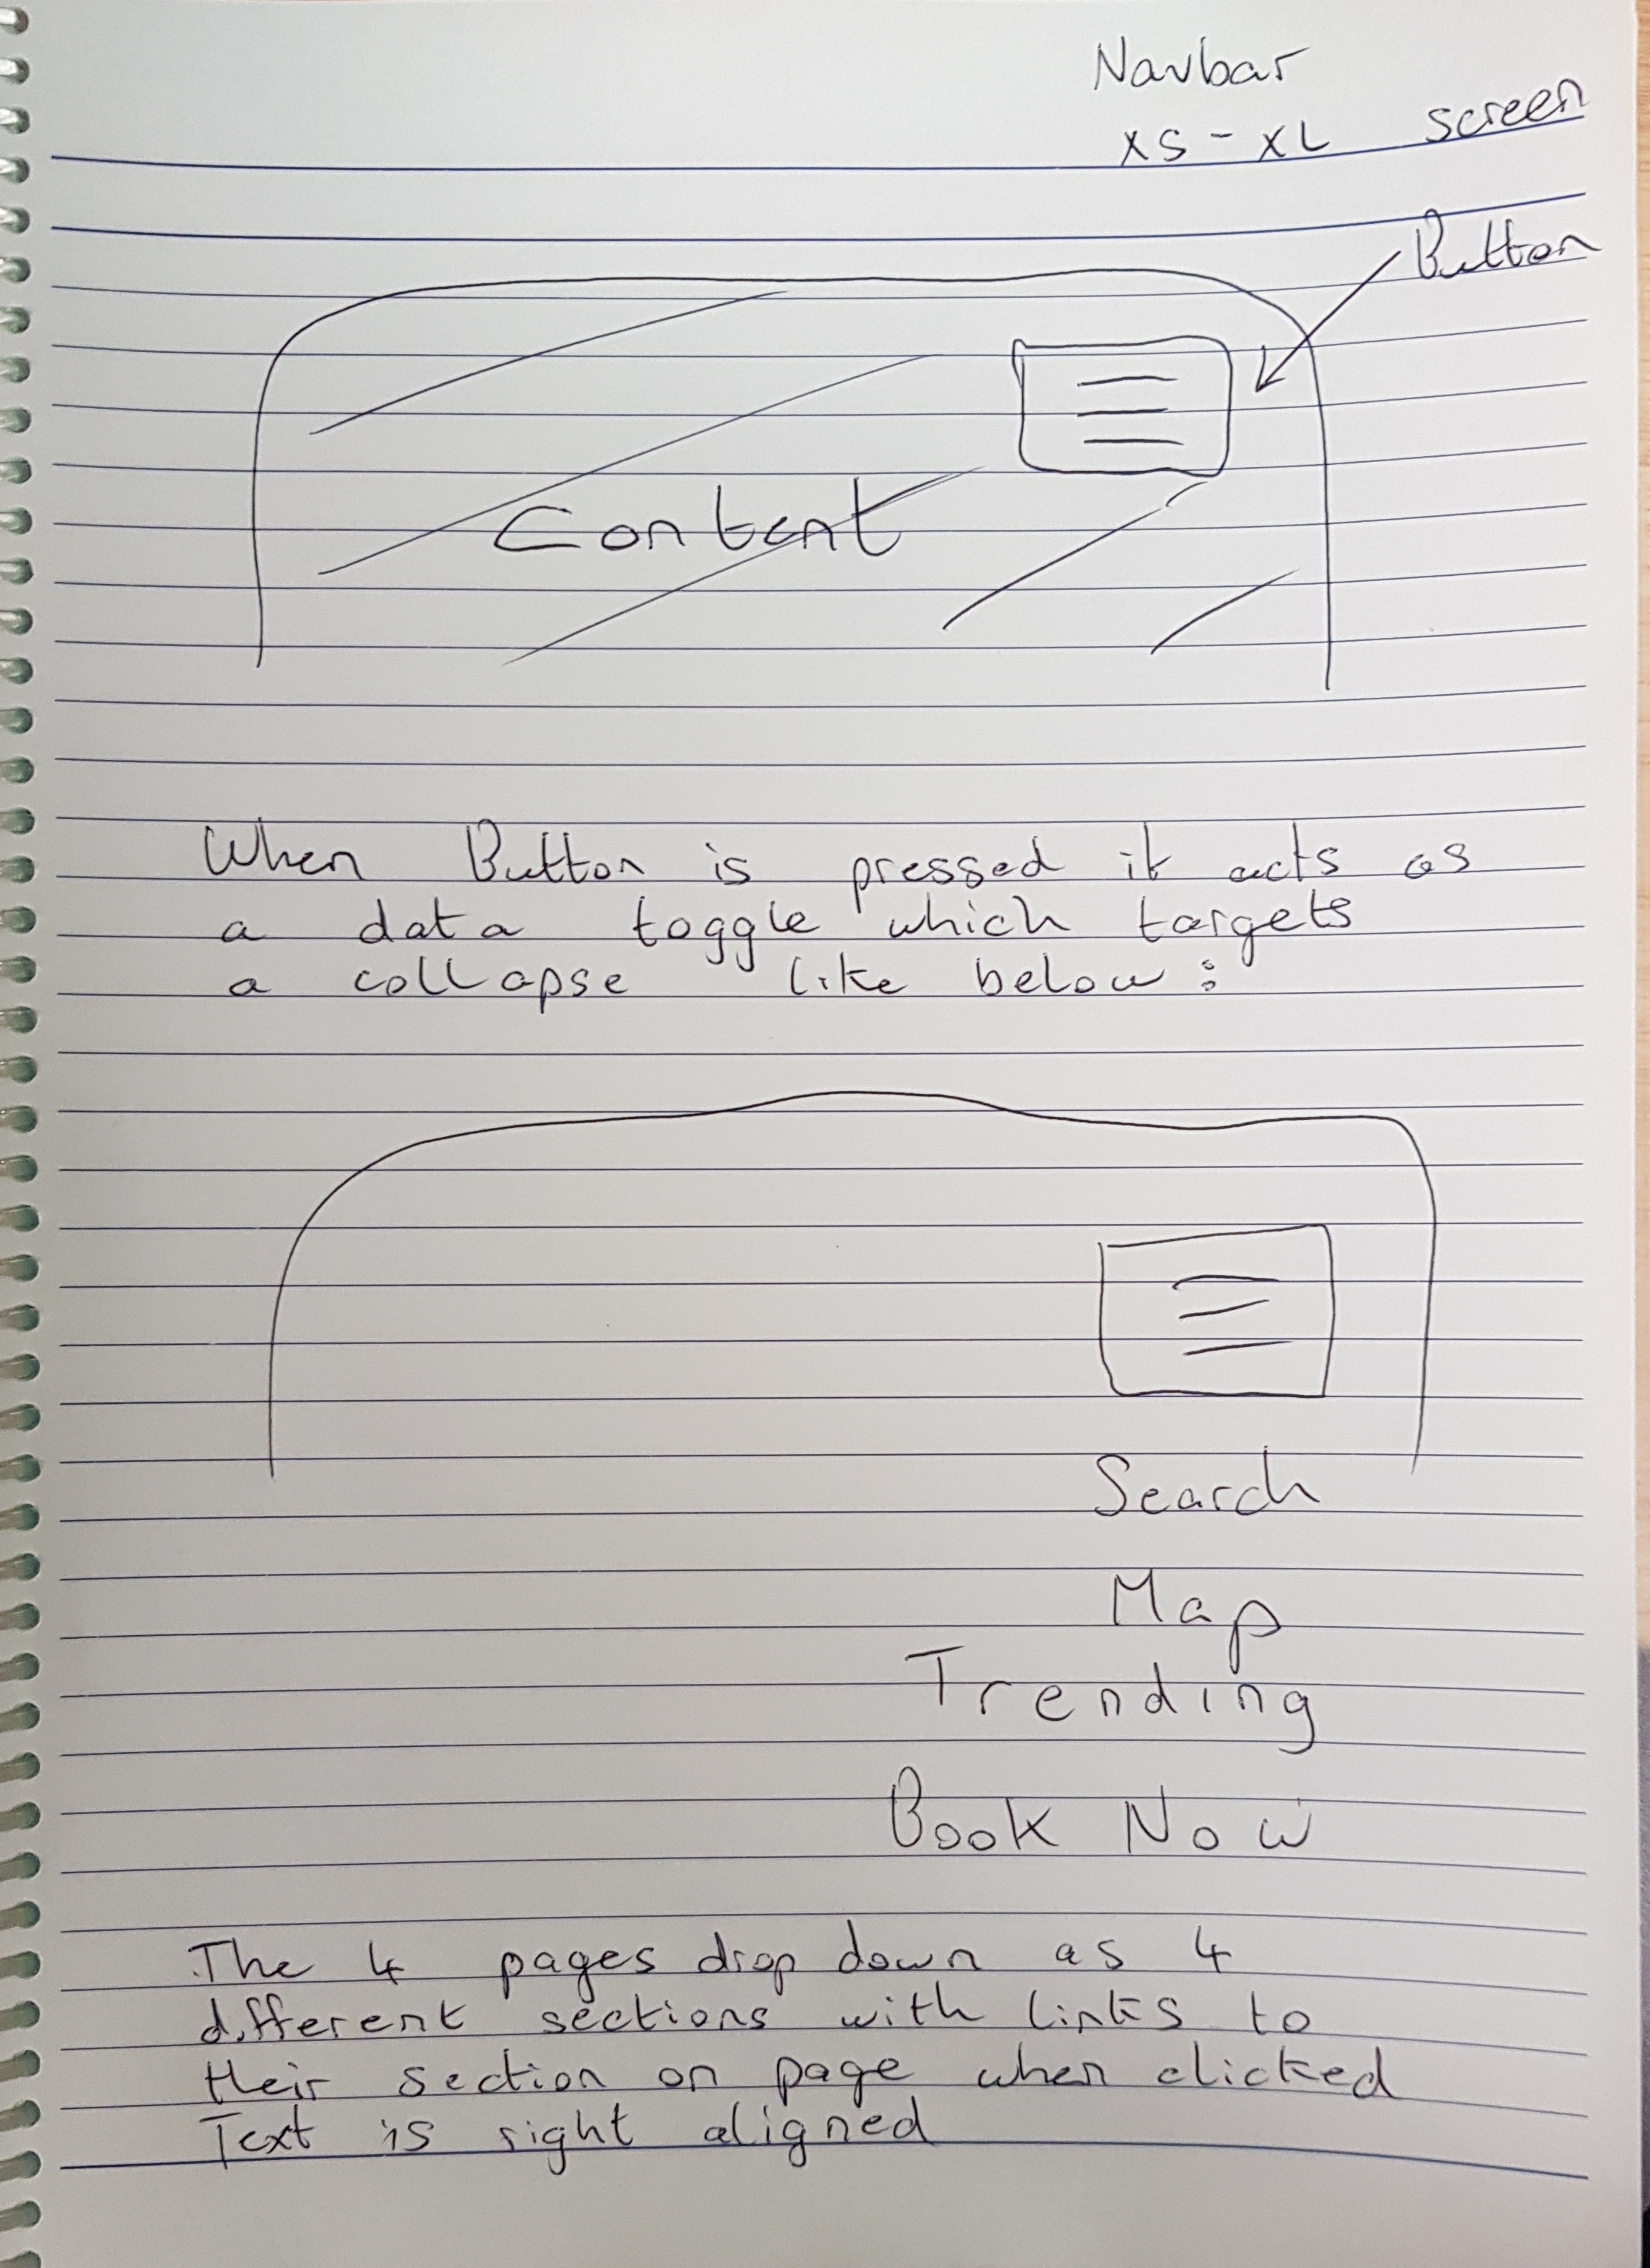 Navbar
XS - XL screen
Button
Content
When Button is pressed it acts as
a data toggle which targets
a collapse like below :
Search
Map
Trending
Book Now
The 4 pages drop down as 4
different sections with links to
their section on page when clicked
Text is right aligned